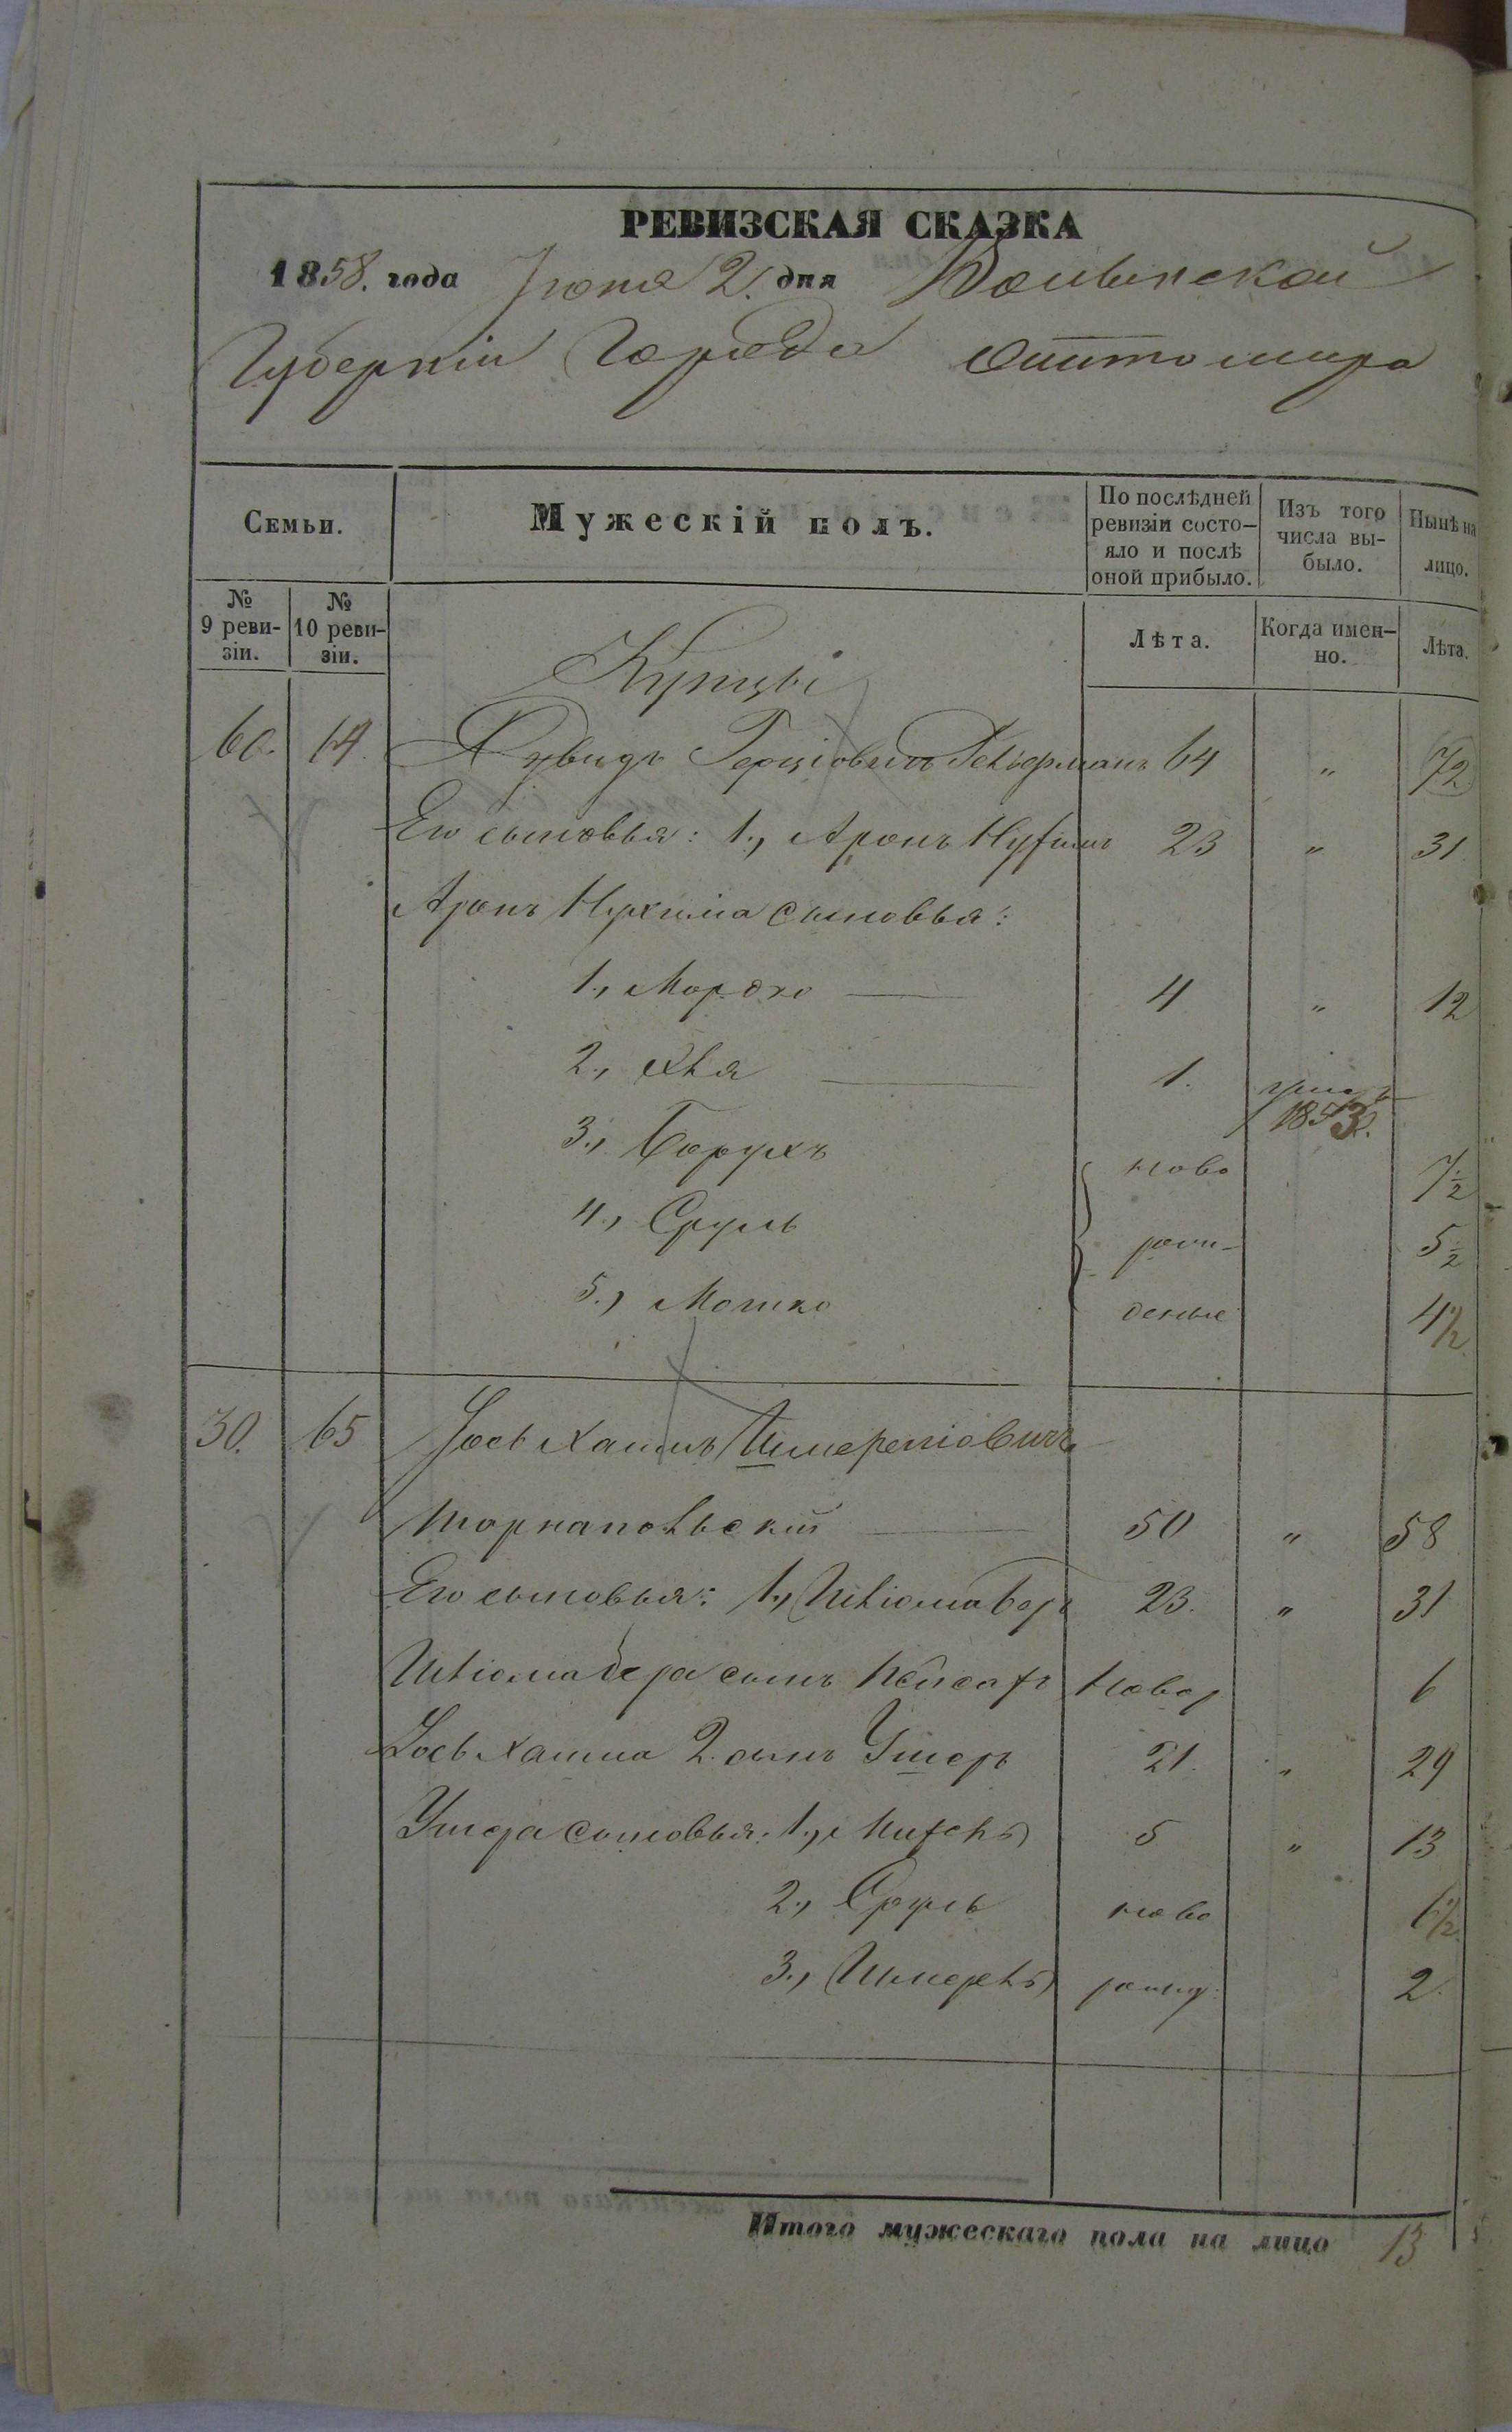 РЕВИЗСКАЯ СКАЗКА
1858. года Іюня 2. дня Волынской
Губерніи Города Житомира
Семьи.
Мужескій полъ.
По послѣдней ревизіи состо-яло и послѣ оной прибыло.
Изъ того числа вы-было.
Нынѣ на лицо.
№ 9 реви-зіи.
№ 10 реви-зіи.
Лѣта.
Когда имен-но.
Лѣта.
Купцы
60. 14. Дувидъ Герціовичъ 64 " 72
Его сыновья: 1., Аронъ Нухимъ 23 " 31
Аронъ Нухима сыновья:
1., Мордко 4 " 12
2., 1. 1853.
3., Борухъ ново 7½
4., Сруль рож- 5½
5., Мошко денные 4½
30. 65 Іось Хаимъ Шмереліовичъ
Тарнапольскій 50 " 58
Его сыновья: 1., Шліомаберъ 23. " 31
Шліомабера сынъ Пейсахъ новор 6
Іось Хаима 2. сынъ Ушеръ 21. " 29
Ушера сыновья: 1., Михель 5 " 13
2., Сруль ново 6½
3., Шмерель рожд: 2.
Итого мужескаго пола на лицо 13